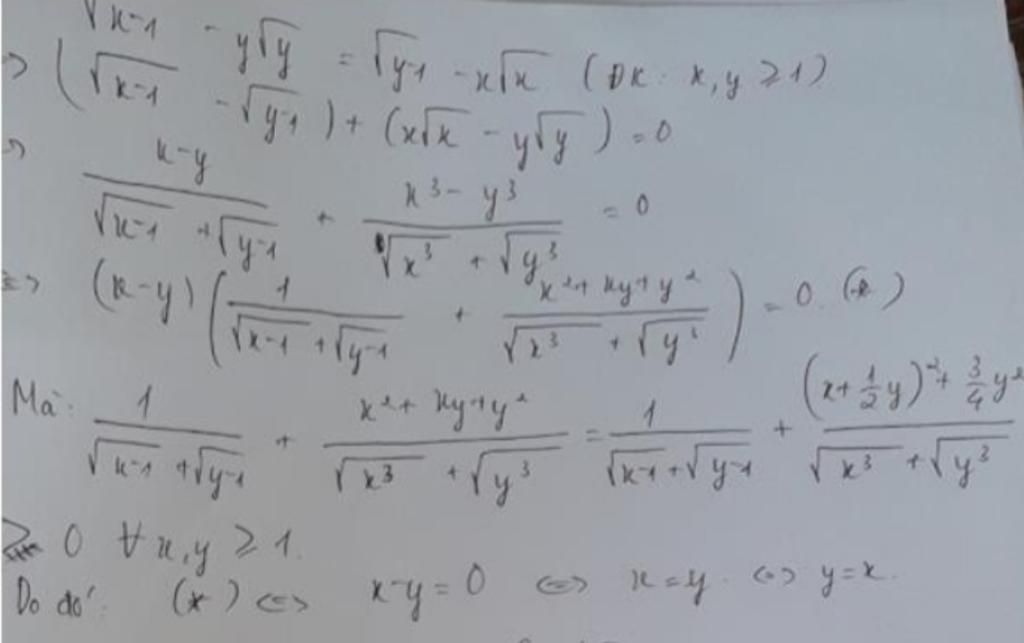 √x-1 - y√y = √y-1 - x√x (ĐK: x, y ≥ 1)
=> (√x-1 - √y-1) + (x√x - y√y) = 0
=> x-y / (√x-1 + √y-1) + x³ - y³ / (√x³ + √y³) = 0
<=> (x-y) (1 / (√x-1 + √y-1) + x² + xy + y² / (√x³ + √y³)) = 0. (*)
Mà: 1 / (√x-1 + √y-1) + x² + xy + y² / (√x³ + √y³) = 1 / (√x-1 + √y-1) + (x + 1/2 y)² + 3/4 y² / (√x³ + √y³)
> 0 ∀ x, y ≥ 1.
Do đó: (*) <=> x-y = 0 <=> x = y <=> y = x.